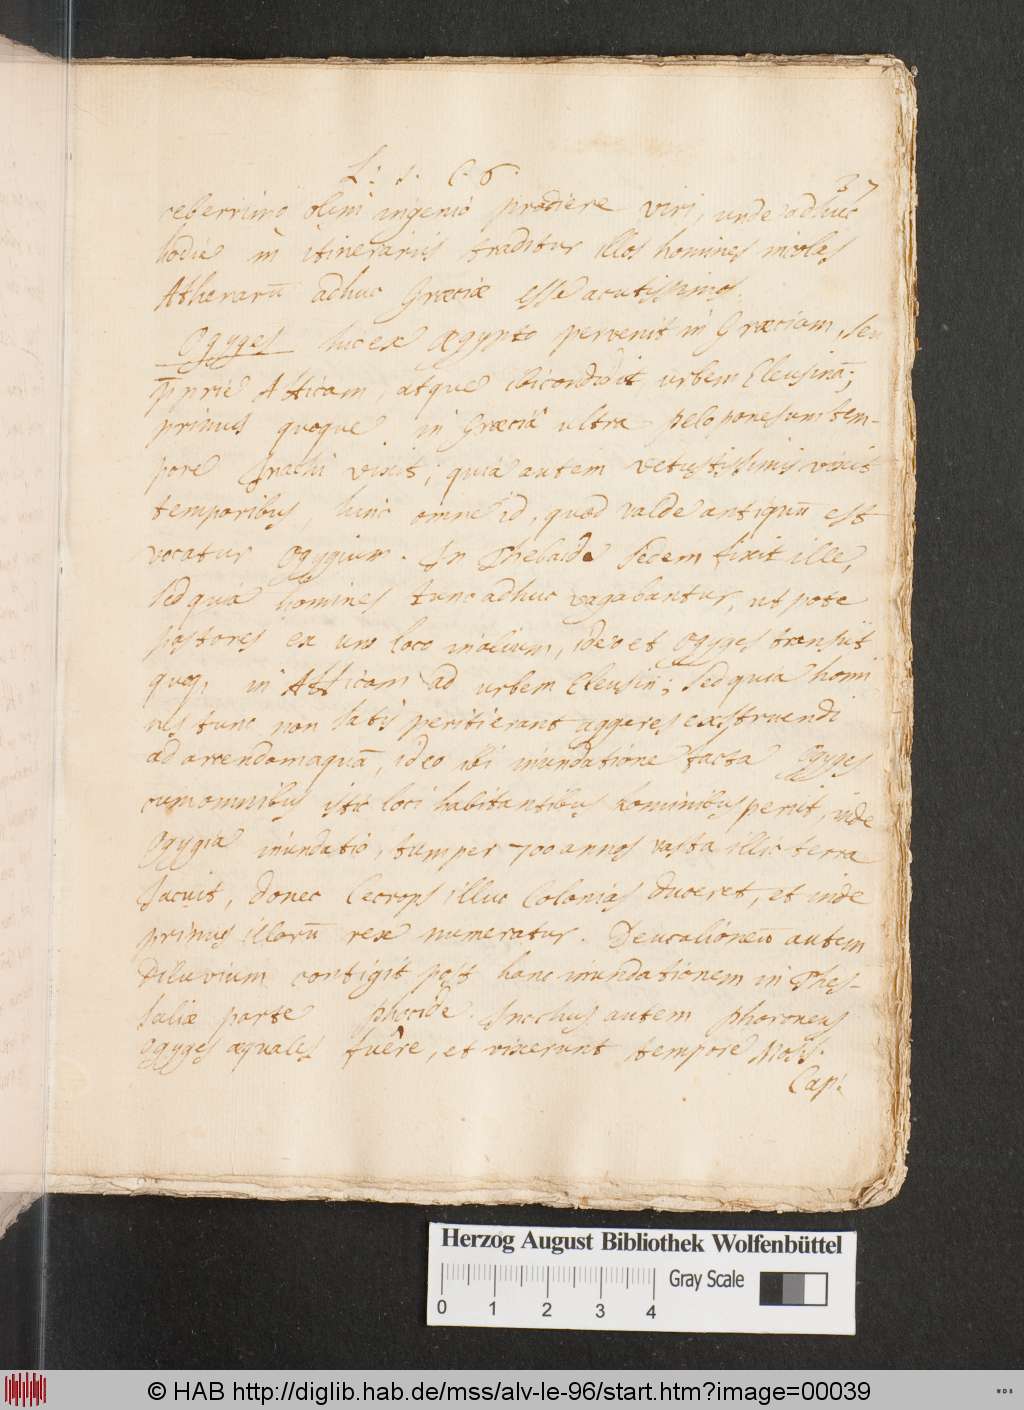 L: 1. C. 6.
37
celerrimo olim ingenio prodiere viri, unde adhuc
hodie in itinerariis traditur illos homines incolas
Athenarū adhuc Græciæ esse acutissimos.
Ogyges hic ex Ægypto pervenit in Græciam, seu
p̄prie Atticam, atque ibi condidit urbem Eleusinā;
primus quoque in Græciâ ultra peloponesum tem-
pore Inachi vixit; quia autem vetustissimis vixit
temporibus, hinc omne id, quod valde antiquū est
vocatur Ogygium. In Thebaide sedem fixit ille,
sed quia homines tunc adhuc vagabantur, ut pote
pastores ex uno loco in alium, ideo et Ogyges transiit
quoq, in Atticam ad urbem Eleusin; sed quia homi
nes tunc non satis periti erant aggeres exstruendi
ad arcendam aquā, ideo ibi inundatione facta Ogyges
cum omnibus istic loci habitantibus hominibus periit, inde
Ogygia inundatio, tum per 700 annos vasta illic terra
jacuit, donec Cecrops illuc Colonias duceret, et inde
primus illorū rex numeratur. Deucalioneū autem
Diluvium contigit post hanc inundationem in Thes-
saliæ parte phocide. Inachus autem phoroneus
Ogyges æquales fuêre, et vixerunt tempore Mosis.
Cap.
Herzog August Bibliothek Wolfenbüttel
0 1 2 3 4
Gray Scale
© HAB http://diglib.hab.de/mss/alv-le-96/start.htm?image=00039